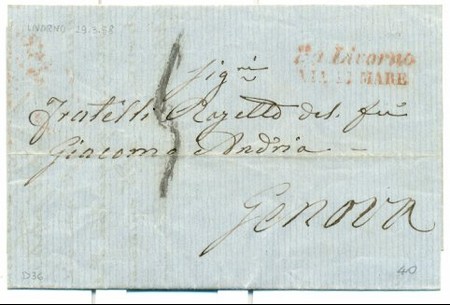 LIVORNO 29.3.58
Da Livorno
VIA DI MARE
Sig.ri
Fratelli Razetto del fu
Giacomo Andria
Genova
D36
40